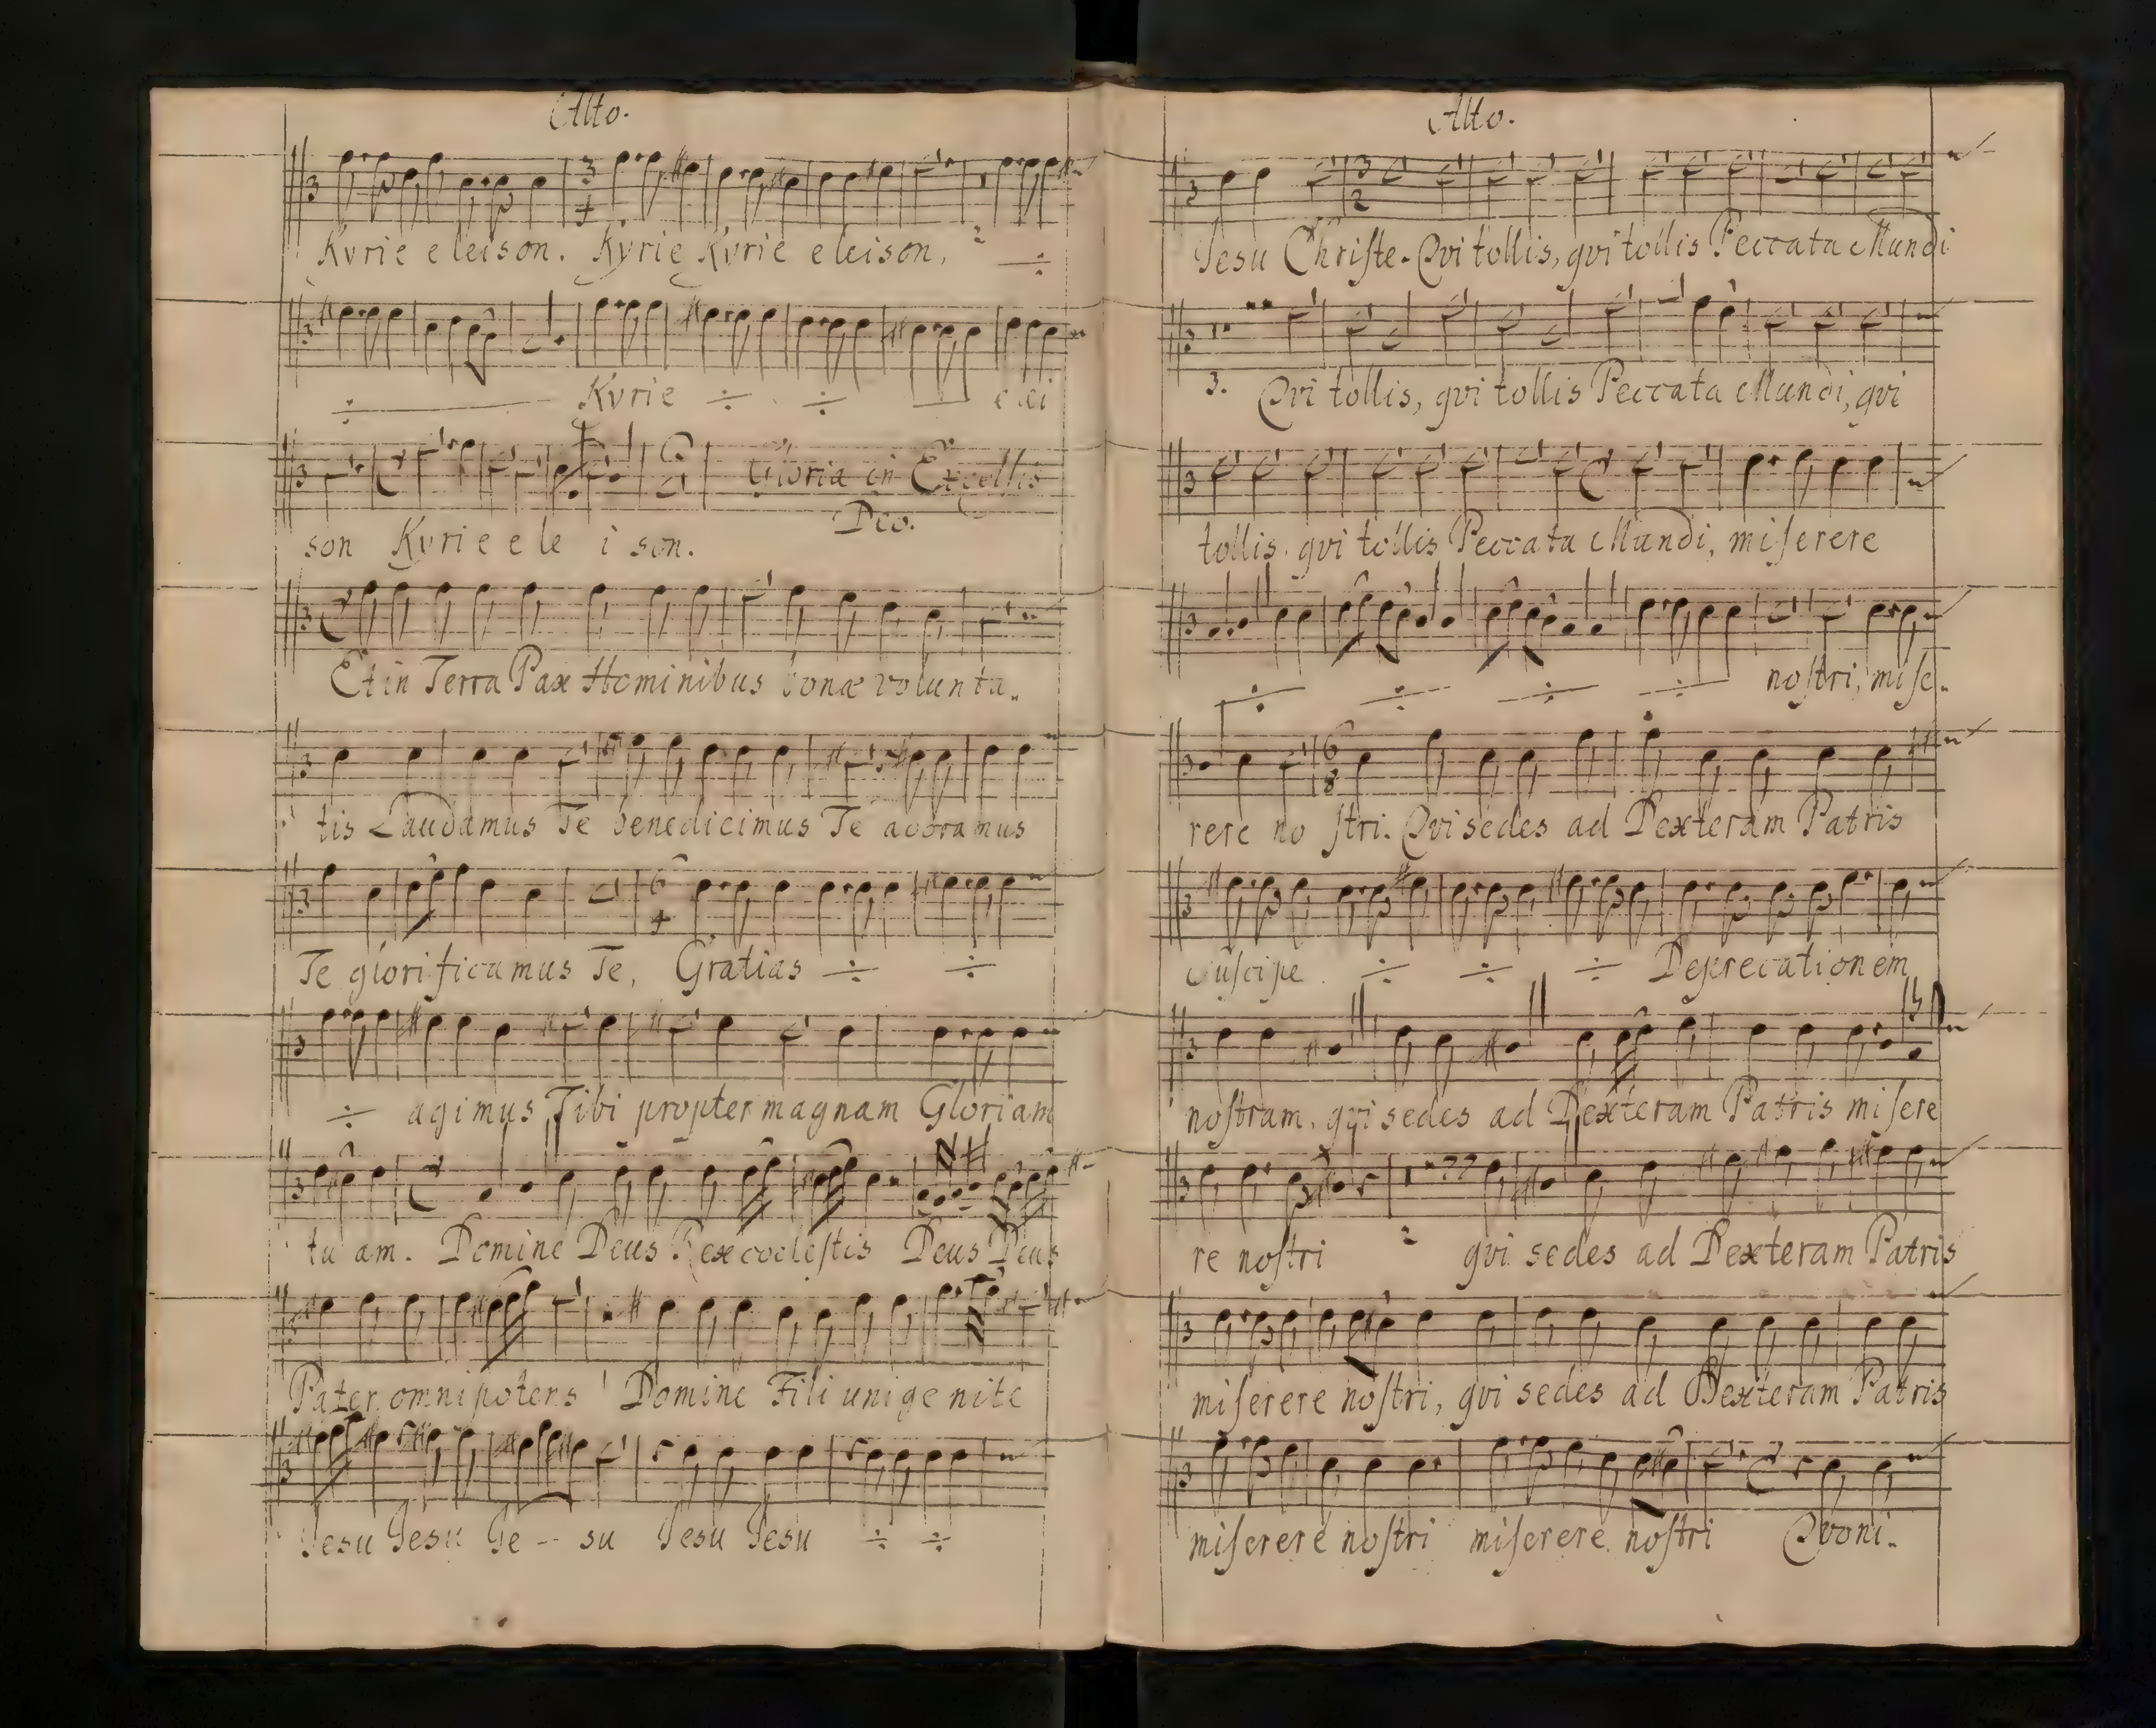 Alto.
Kyrie eleison. Kyrie Kyrie eleison, ÷
÷ Kyrie ÷ ÷ elei
Gloria in Excelsis
Deo.
son Kyrie e le i son.
Et in Terra Pax Hominibus bonæ volunta„
tis Laudamus Te benedicimus Te adoramus
Te glorificamus Te, Gratias ÷ ÷
÷ agimus Tibi propter magnam Gloriam
tu am. Domine Deus Rex coelestis Deus Deus
Pater omnipotens Domine Fili unigenite
Jesu Jesu Je -- su Jesu Jesu ÷ ÷
Alto.
Jesu Chriſte. Qvi tollis, qvi tollis Peccata Mundi
3. Qvi tollis, qvi tollis Peccata Mundi, qvi
tollis, qvi tollis Peccata Mundi, miſerere
÷ ÷ ÷ ÷ noſtri, miſe„
rere no ſtri. Qvi sedes ad Dexteram Patris
Suſcipe ÷ ÷ ÷ Deprecationem
noſtram, qvi sedes ad Dexteram Patris miſere
re noſtri 2 qvi sedes ad Dexteram Patris
miſerere noſtri, qvi sedes ad Dexteram Patris
miſerere noſtri miſerere noſtri Qvoni„